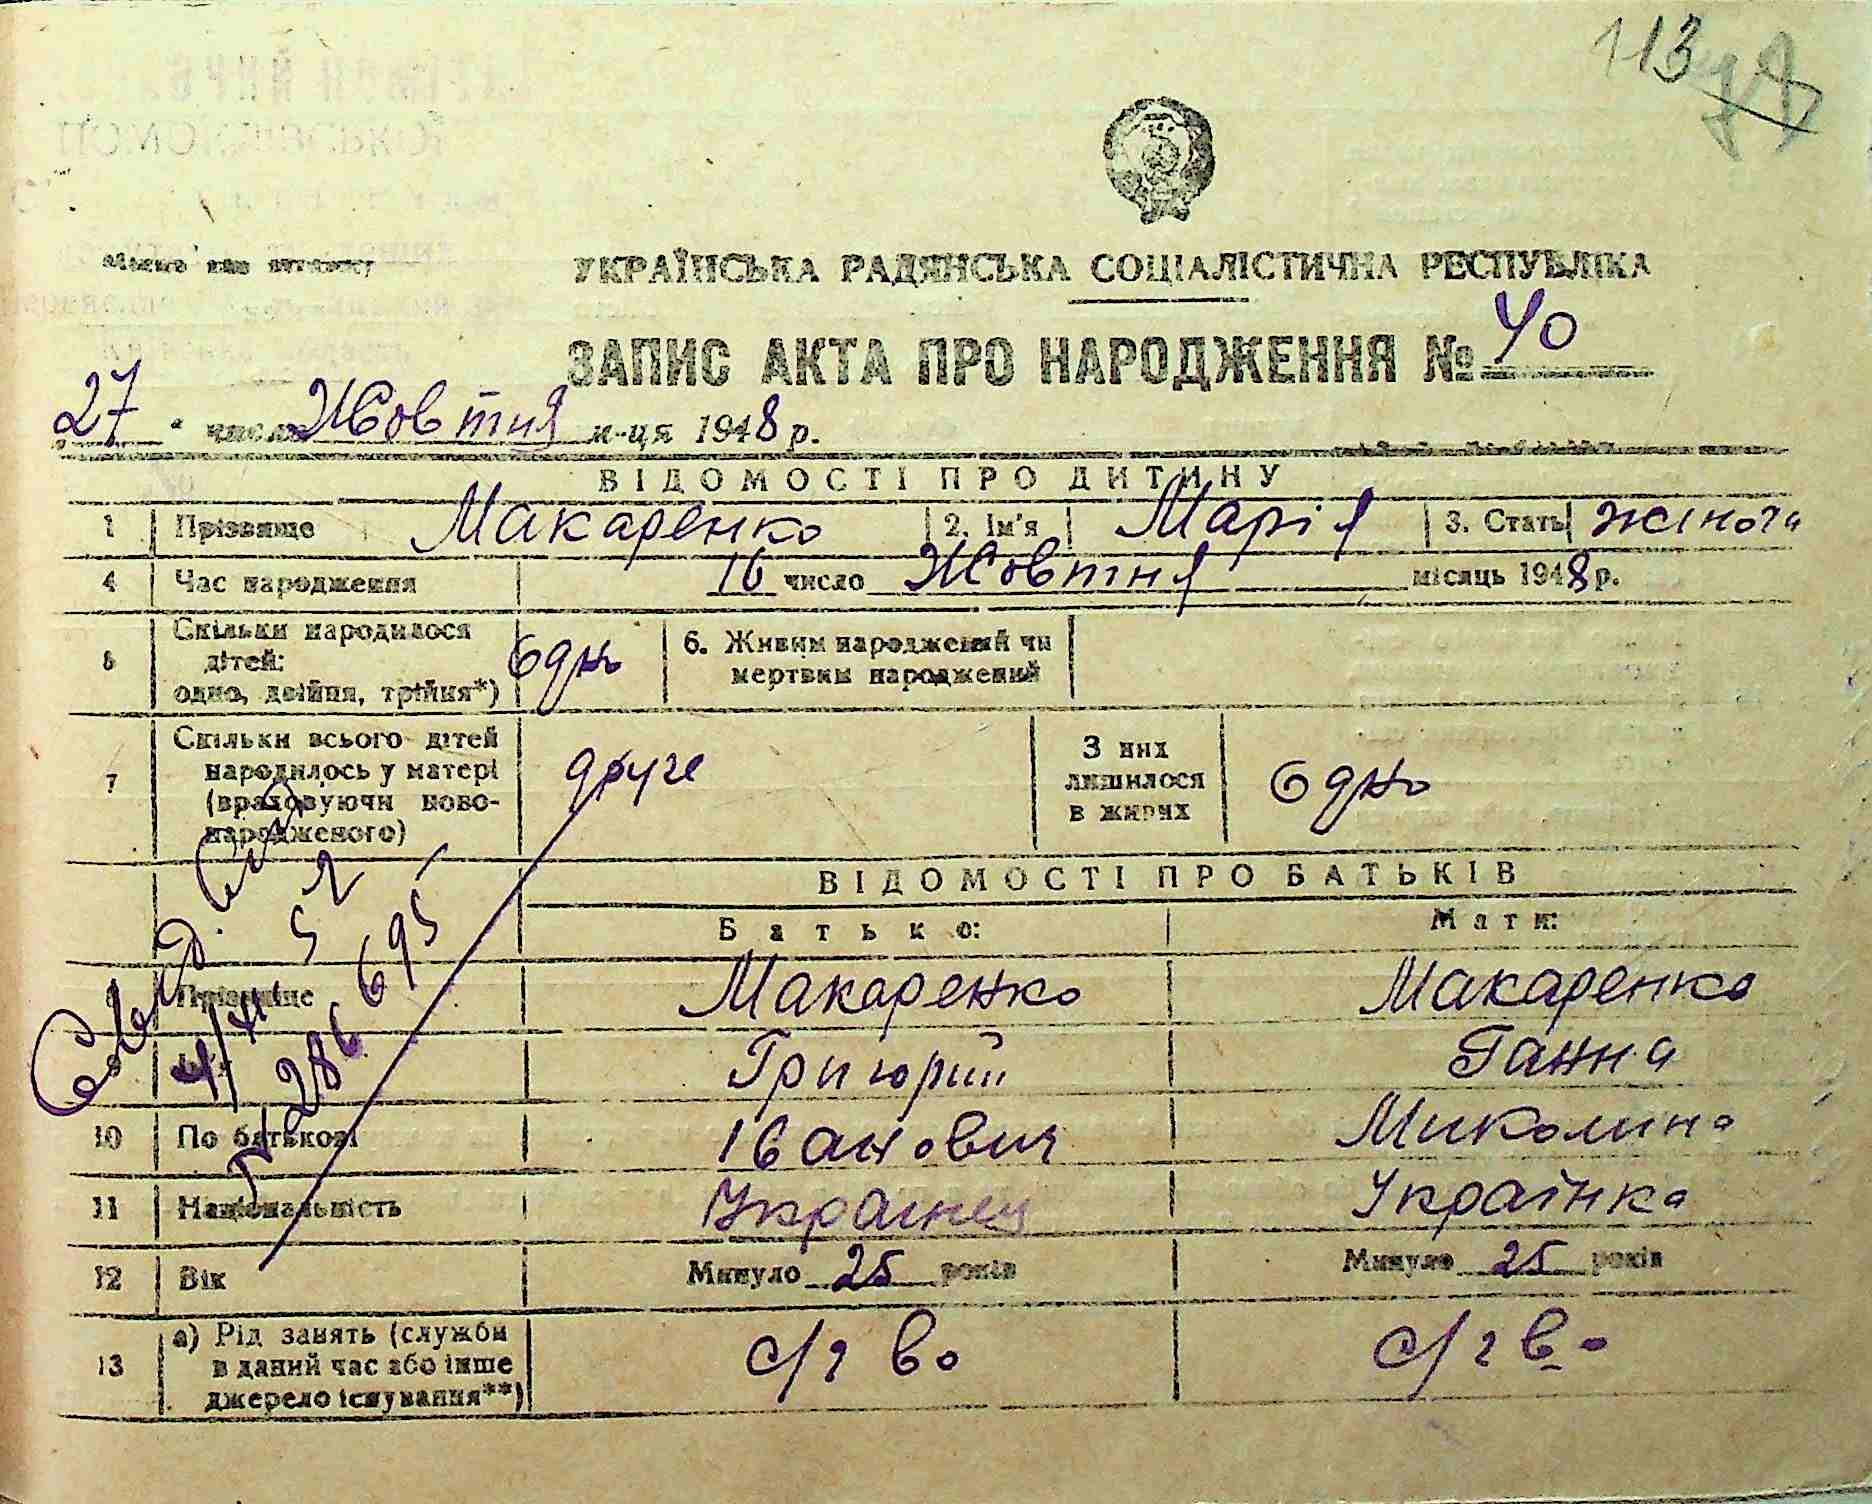 113
Місце для штампу
УКРАЇНСЬКА РАДЯНСЬКА СОЦІАЛІСТИЧНА РЕСПУБЛІКА
ЗАПИС АКТА ПРО НАРОДЖЕННЯ № 40
"27" числа Жовтня м-ця 1948 р.
ВІДОМОСТІ ПРО ДИТИНУ
1 Прізвище Макаренко 2. Ім'я Марія 3. Стать жіноча
4 Час народження 16 число Жовтня місяць 1948 р.
5 Скільки народилося дітей: одно, двійня, трійня*) Одно 6. Живим народжений чи мертвим народжений
7 Скільки всього дітей народилось у матері (враховуючи новонародженого) друге З них лишилося в живих Одно
ВІДОМОСТІ ПРО БАТЬКІВ
Батько: Мати:
8 Прізвище Макаренко Макаренко
9 Ім'я Григорий Ганна
10 По батькові Іванович Миколина
11 Національність Украінец Українка
12 Вік Минуло 25 років Минуло 25 років
13 а) Рід занять (служби в даний час або інше джерело існування**) с/г во с/г во
286695